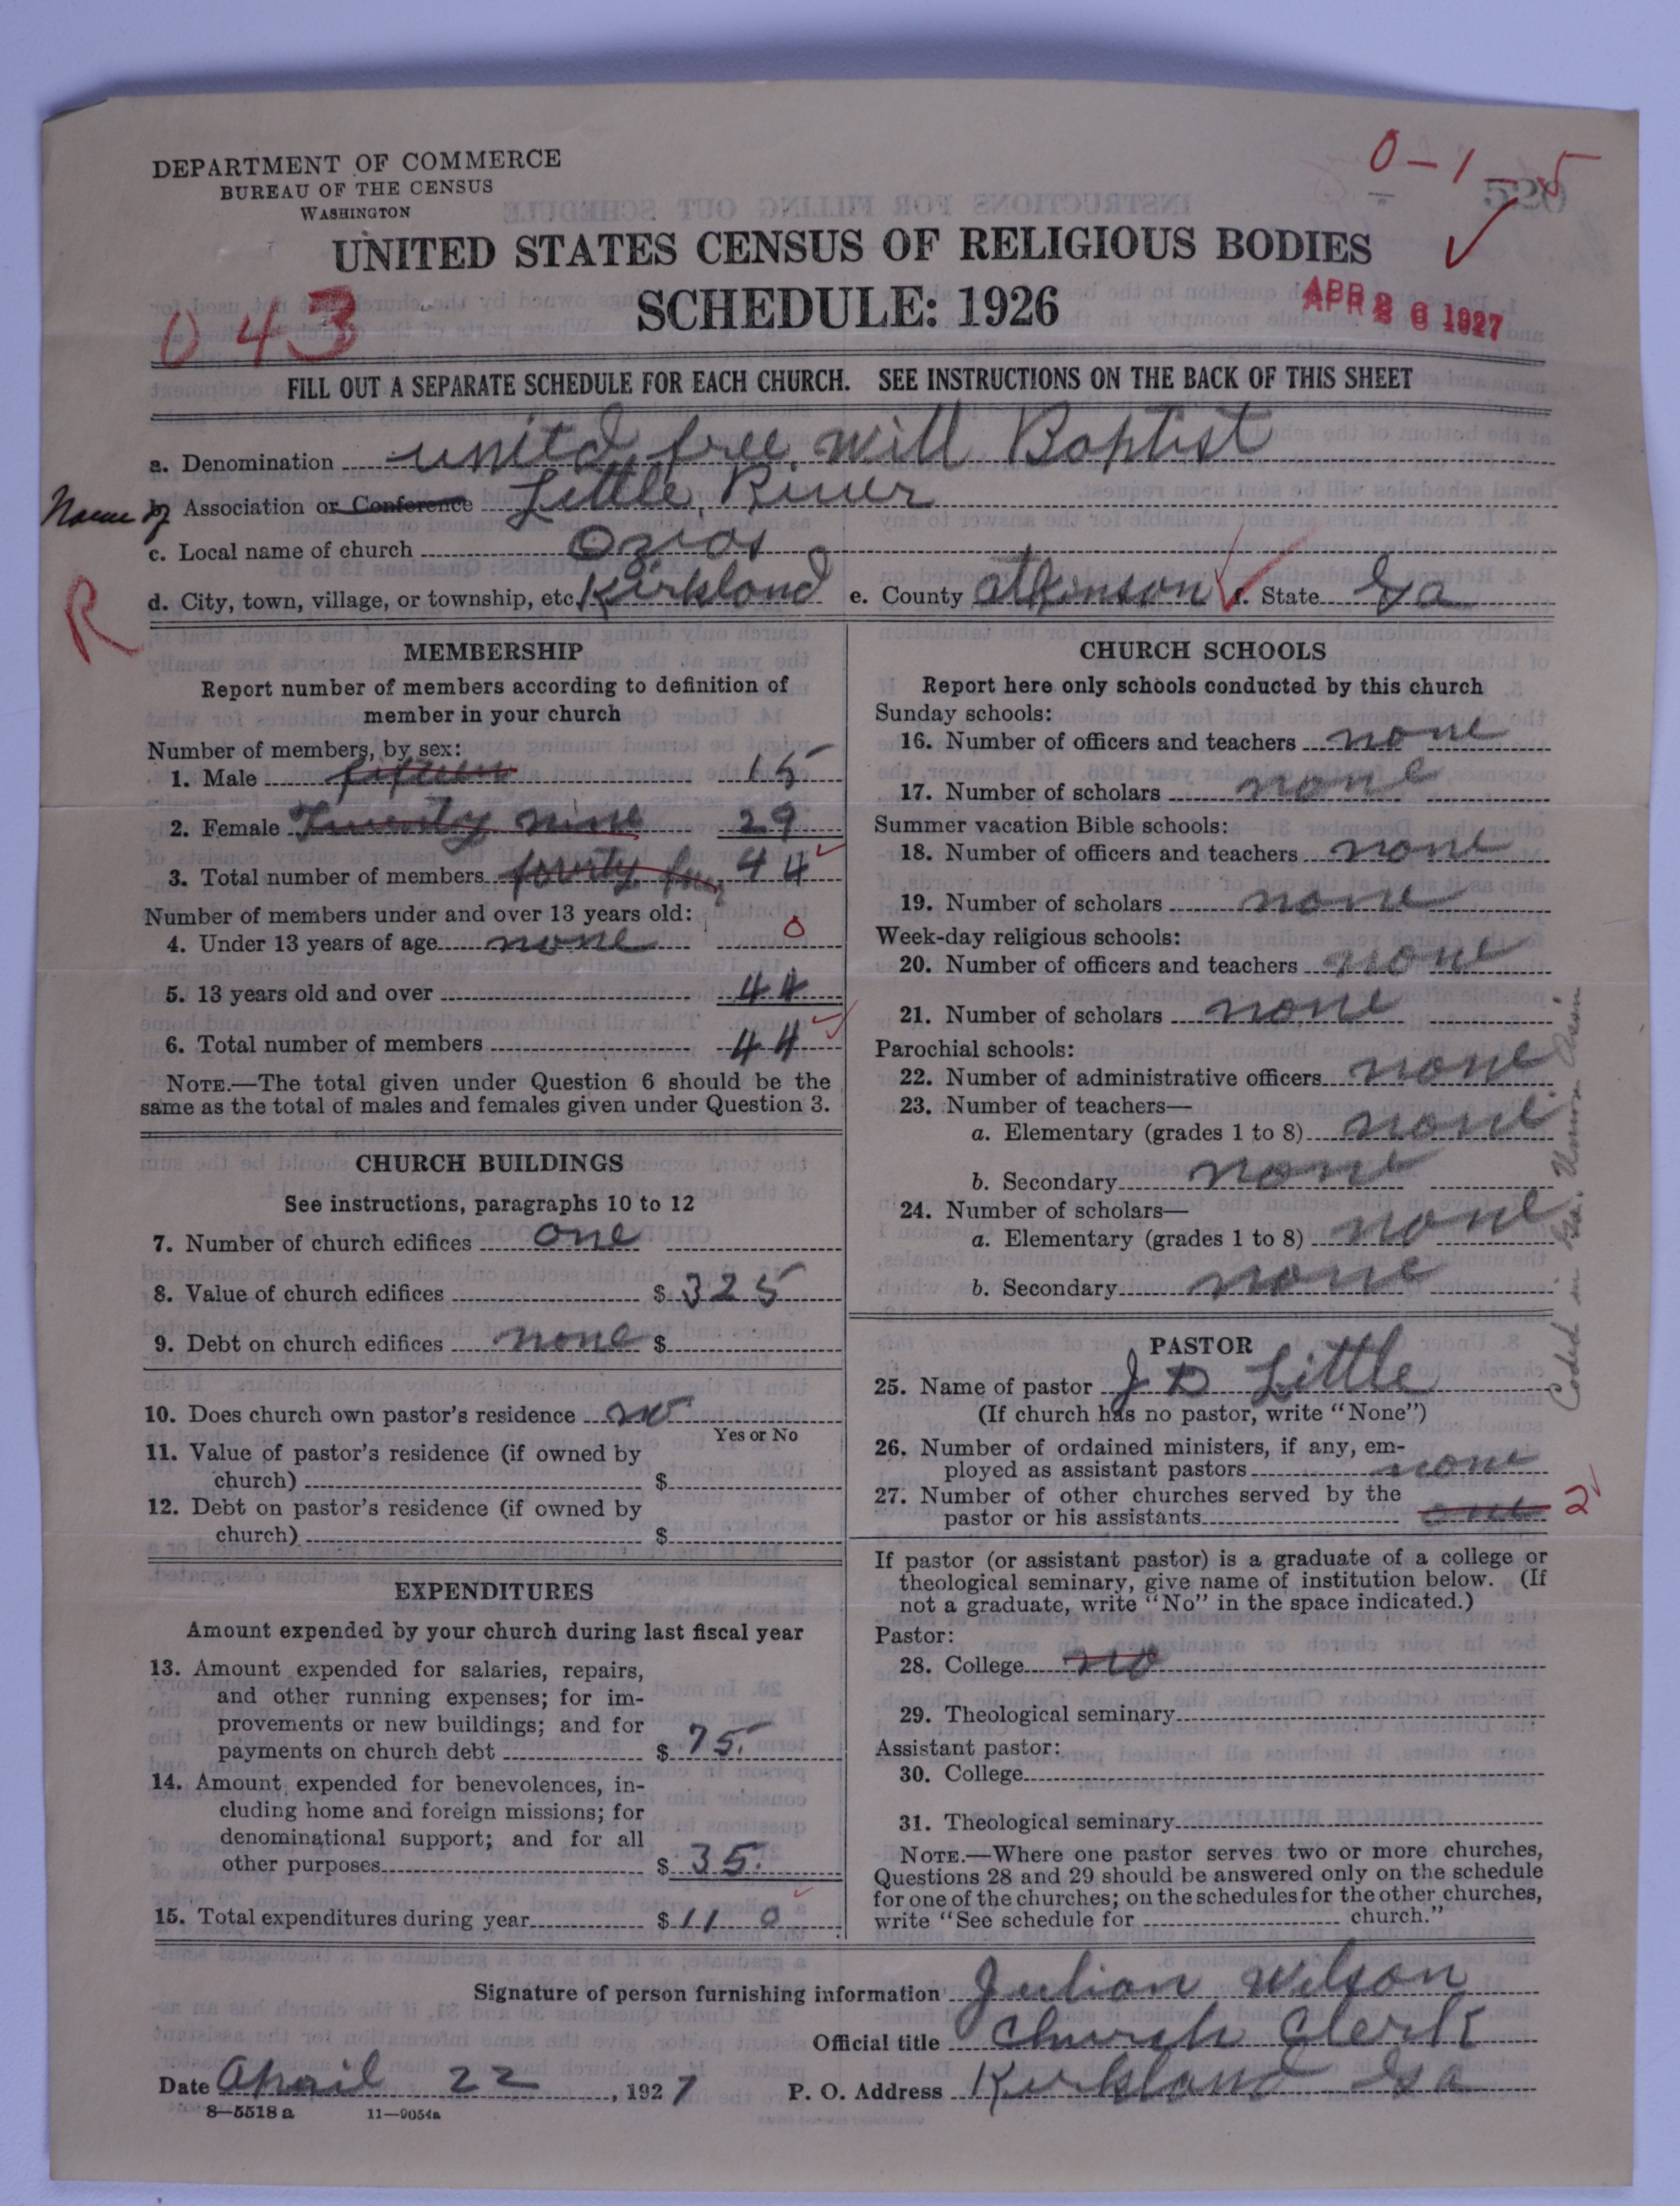 0-1-5
520
DEPARTMENT OF COMMERCE
BUREAU OF THE CENSUS
WASHINGTON
UNITED STATES CENSUS OF RELIGIOUS BODIES
SCHEDULE: 1926
043
APR 26 1927
FILL OUT A SEPARATE SCHEDULE FOR EACH CHURCH. SEE INSTRUCTIONS ON THE BACK OF THIS SHEET
a. Denomination united free will Baptist
Name of b. Association or Conference Little River
c. Local name of church Ozias
d. City, town, village, or township, etc. Kirkland e. County atkinson f. State Ga
R
MEMBERSHIP
Report number of members according to definition of
member in your church
Number of members, by sex:
1. Male fifteen 15
2. Female Twenty nine 29
3. Total number of members fourty four 44
Number of members under and over 13 years old:
4. Under 13 years of age none 0
5. 13 years old and over 44
6. Total number of members 44
NOTE.—The total given under Question 6 should be the
same as the total of males and females given under Question 3.
CHURCH BUILDINGS
See instructions, paragraphs 10 to 12
7. Number of church edifices one
8. Value of church edifices $ 325
9. Debt on church edifices none $
10. Does church own pastor's residence no
Yes or No
11. Value of pastor's residence (if owned by
church) $
12. Debt on pastor's residence (if owned by
church) $
EXPENDITURES
Amount expended by your church during last fiscal year
13. Amount expended for salaries, repairs,
and other running expenses; for im-
provements or new buildings; and for
payments on church debt $ 75.
14. Amount expended for benevolences, in-
cluding home and foreign missions; for
denominational support; and for all
other purposes $ 35.
15. Total expenditures during year $ 110
CHURCH SCHOOLS
Report here only schools conducted by this church
Sunday schools:
16. Number of officers and teachers none
17. Number of scholars none
Summer vacation Bible schools:
18. Number of officers and teachers none
19. Number of scholars none
Week-day religious schools:
20. Number of officers and teachers none
21. Number of scholars none
Parochial schools:
22. Number of administrative officers none
23. Number of teachers—
a. Elementary (grades 1 to 8) none
b. Secondary none
24. Number of scholars—
a. Elementary (grades 1 to 8) none
b. Secondary none
Coded in Ga.
PASTOR
25. Name of pastor J D Little
(If church has no pastor, write "None")
26. Number of ordained ministers, if any, em-
ployed as assistant pastors none
27. Number of other churches served by the
pastor or his assistants one 2
If pastor (or assistant pastor) is a graduate of a college or
theological seminary, give name of institution below. (If
not a graduate, write "No" in the space indicated.)
Pastor:
28. College no
29. Theological seminary
Assistant pastor:
30. College
31. Theological seminary
NOTE.—Where one pastor serves two or more churches,
Questions 28 and 29 should be answered only on the schedule
for one of the churches; on the schedules for the other churches,
write "See schedule for church."
Signature of person furnishing information Julian Wilson
Official title Church Clerk
Date April 22, 1927 P. O. Address Kirkland Ga
8—5518 a 11—9054a